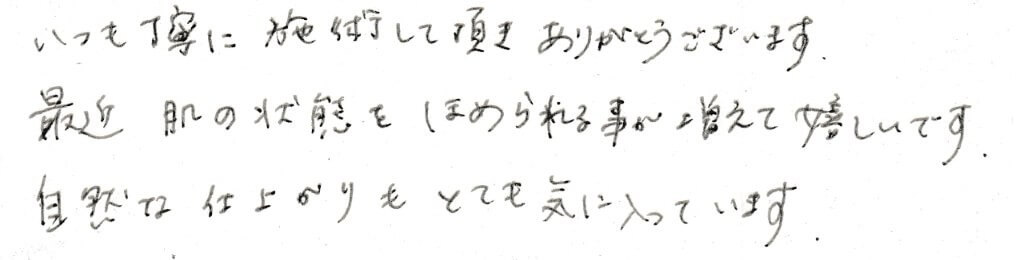 いつも丁寧に 施術して頂き ありがとうございます.
最近 肌の状態を ほめられる事が 増えて 嬉しいです.
自然な 仕上がりも とても 気に入っています.